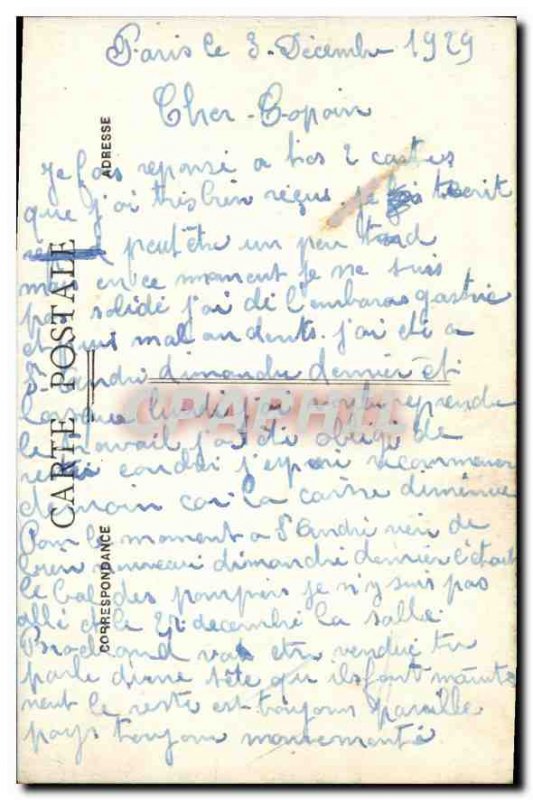 Paris le 3. Décembre 1929
Cher-Copain
je fais reponse a tes 2 cartes
que j'ai très bien reçus. je t'ecrit
peut être un peu tard
mais en ce moment je ne suis
pas solide j'ai de l'embaras gastric
et puis mal au dents. j'ai été a
St André dimanche dernier et
lundi reprendre
le travail j'ai été obligé de
j'espere recommencer
demain car la caisse diminue
Pour le moment a St André rien de
bien nouveau dimanche dernier c'était
le bal des pompiers je n'y suis pas
allé et le 21 decembre la salle
va etre vendue tu
parle d'une tête que ils font mainte
nent le reste est toujours pareille
pays toujours mouvementé.
CARTE POSTALE
CORRESPONDANCE
ADRESSE